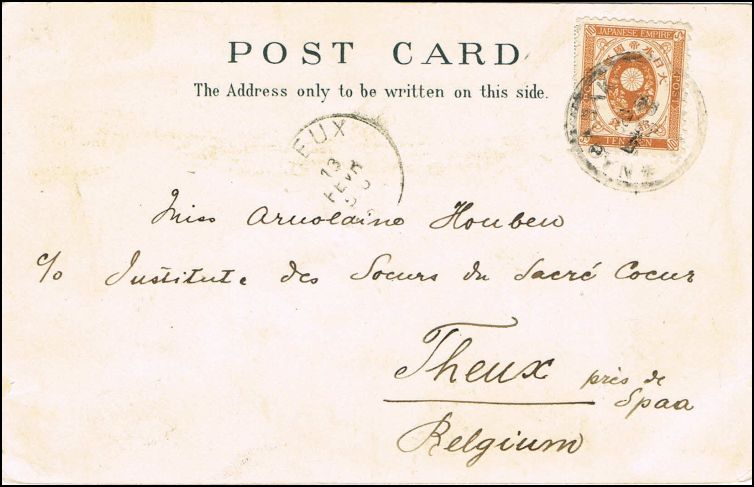 POST CARD
The Address only to be written on this side.
JAPANESE EMPIRE
大日本帝國
POST
TEN SEN
NAGASAKI
HEUX
13
FEVR
Miss Arnoldine Houben
c/o Institute des Soeurs du Sacré Coeur
Theux près de
Spaa
Belgium